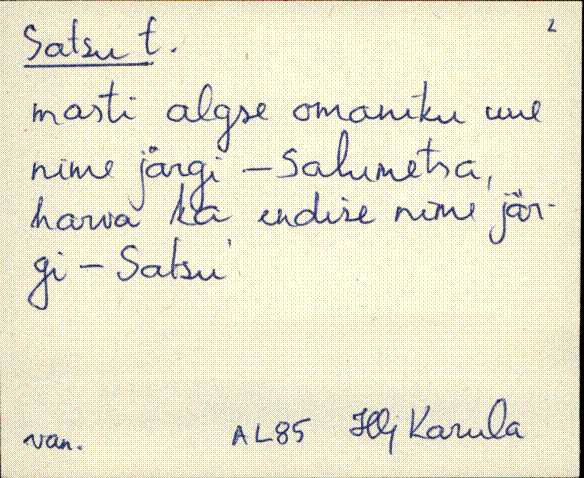 2
Satsu t.
masti algse omaniku uue
nime järgi – Salumetsa,
harva ka endise nime jär-
gi – Satsu
van. AL85 Hlj Karula